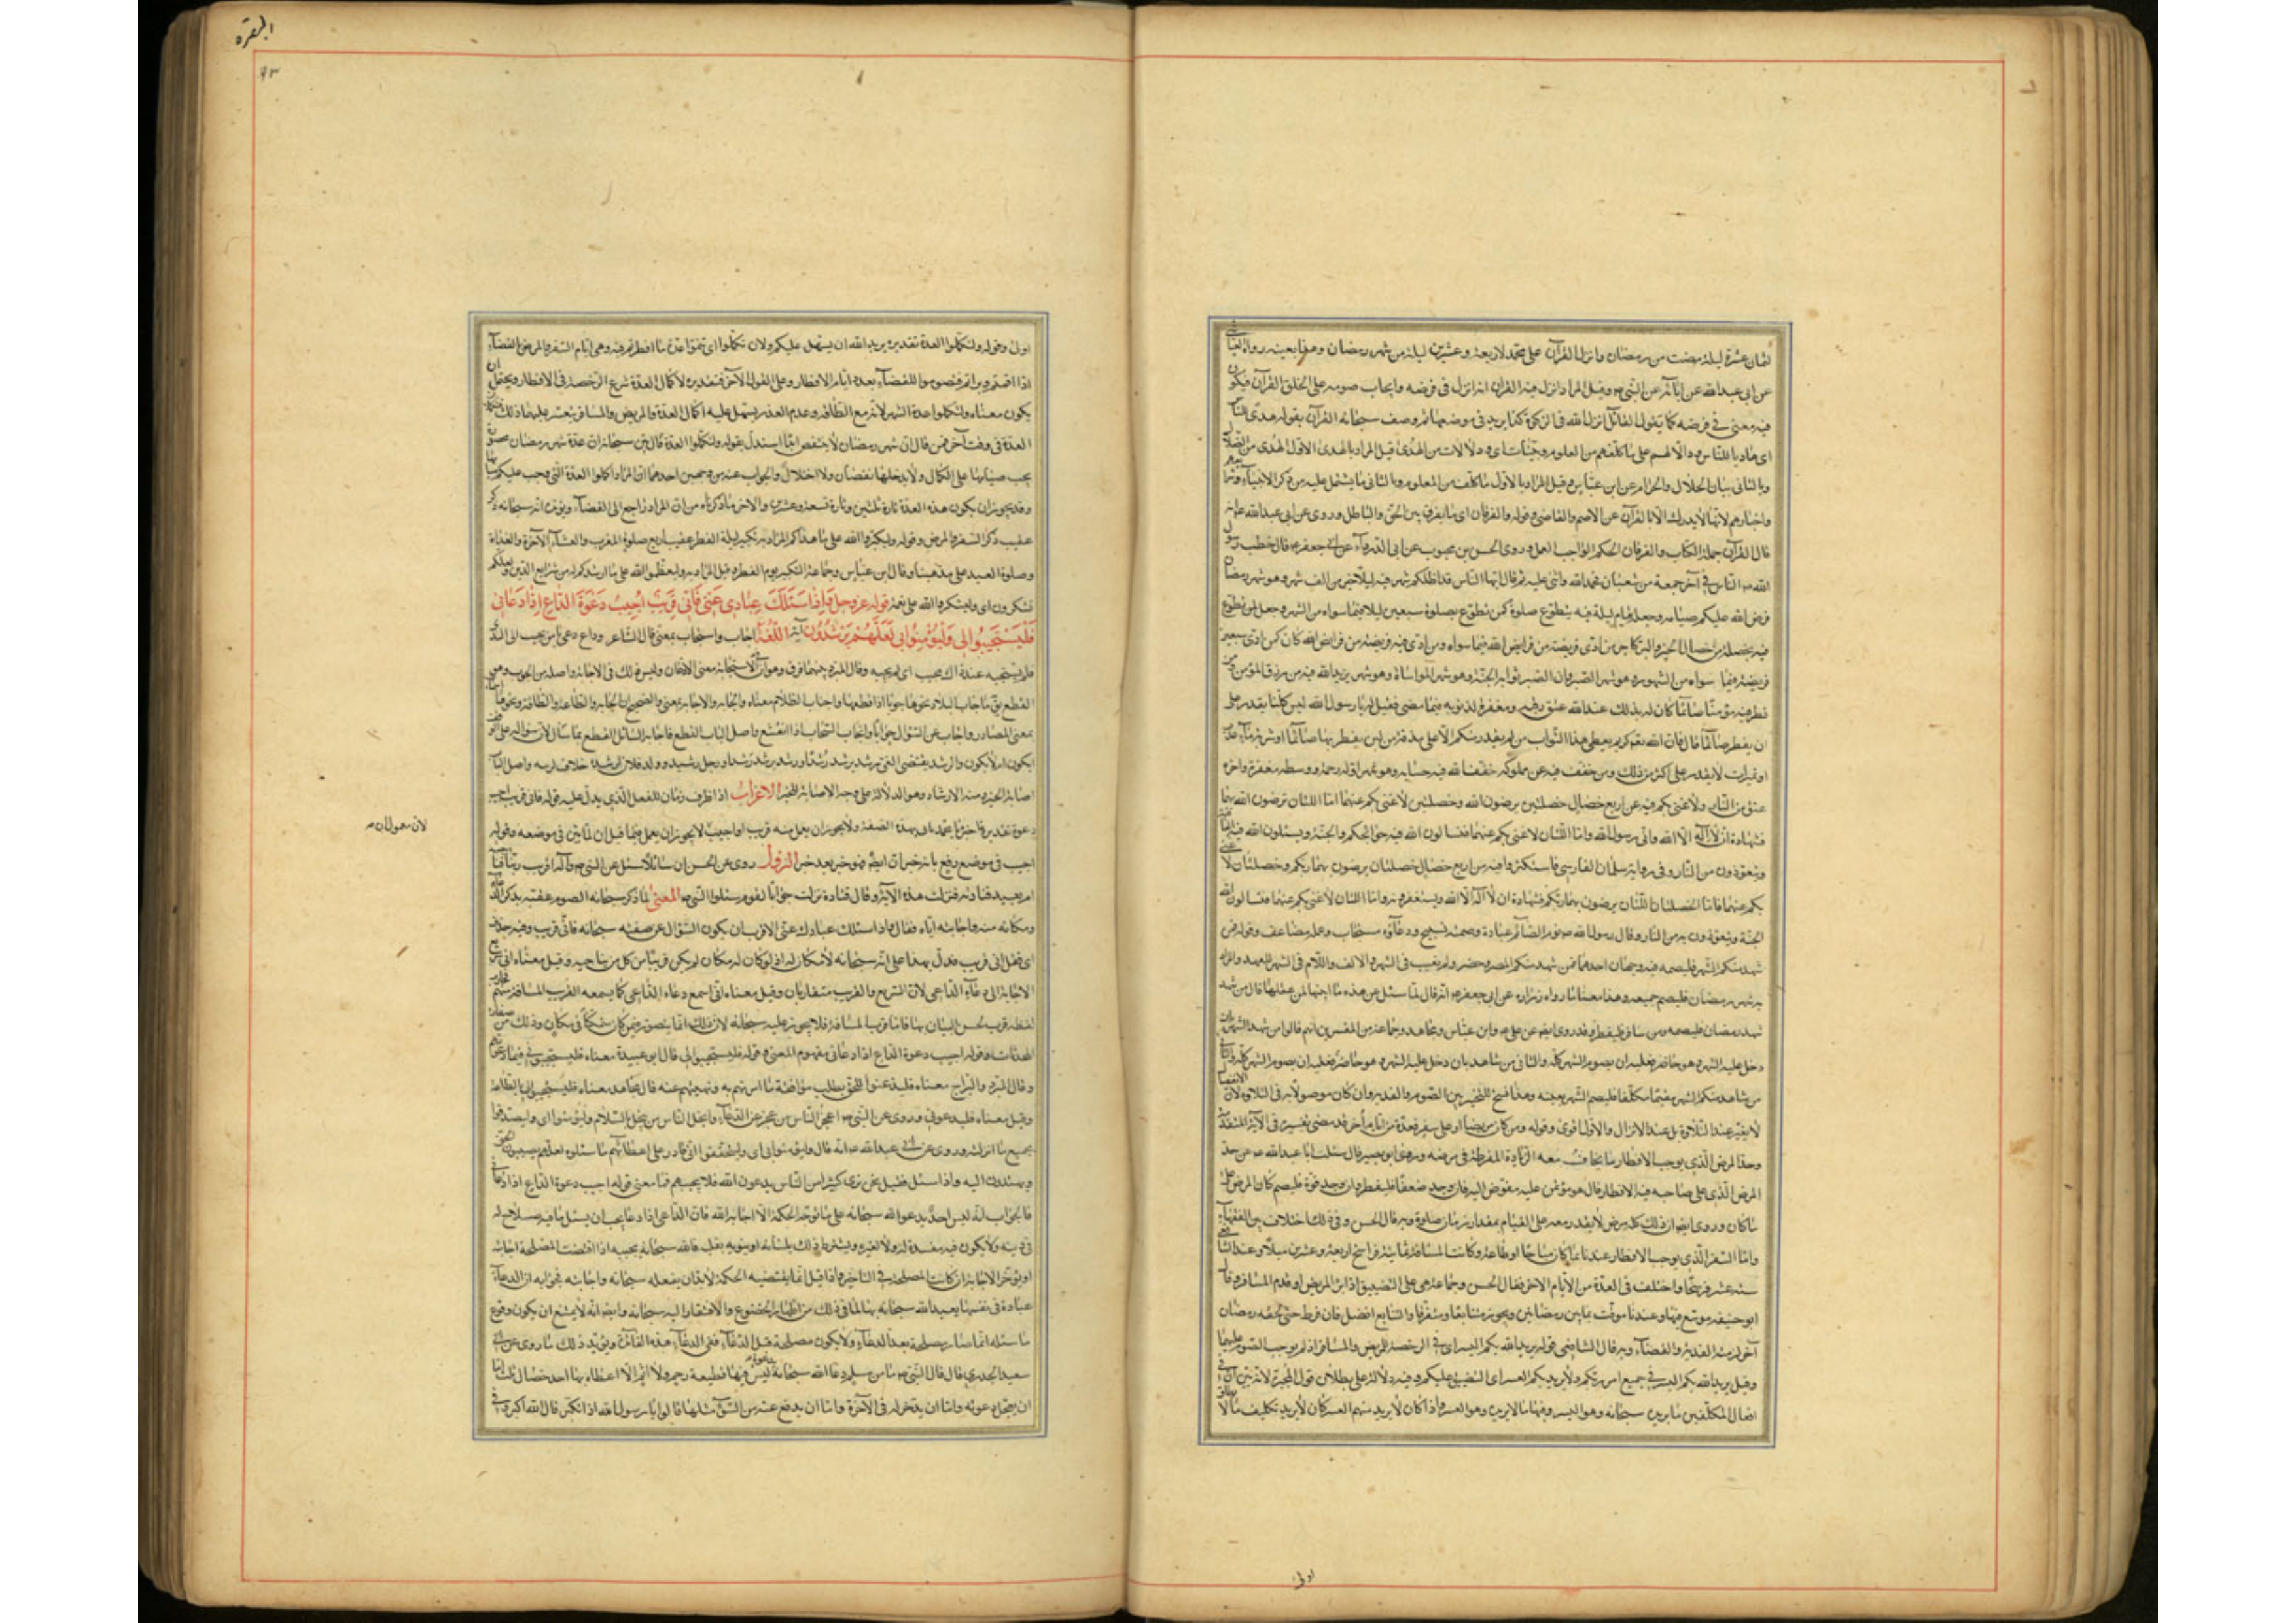 لثمان عشرة ليلة مضت من رمضان وانزل القرآن على محمد لاربعة وعشرين ليلة من شهر رمضان وهذا بعينه رواه العياشي
عن ابى عبدالله عن ابائه عن النبى ص وقيل المراد انزل فيه القرآن انه انزل فى فرضه وايجاب صومه على الخلق القرآن فيكون
فيه معنى فى فرضه كما يقول القائل انزل الله فى الزكوة كذا يريد فى فرضها ثم وصف سبحانه القرآن بقوله هدى للناس
اى هاديا للناس ودالا لهم على ما كلفهم من العلوم وبينات اى ودلالات من الهدى قيل المراد بالهدى الاول الهدى من الضلالة
وبالثانى بيان الحلال والحرام عن ابن عباس وقيل المراد بالاول ما كلف من العلوم وبالثانى ما يشتمل عليه من ذكر الانبياء وشرائعهم
واخبارهم لانها لا يدرك الا بالقرآن عن الاصم والقاضى وقوله والفرقان اى ما يفرق بين الحق والباطل وروى عن ابى عبدالله ع انه
قال القرآن جملة الكتاب والفرقان المحكم الواجب العمل وروى الحسن بن محبوب عن ابى عن ابى جعفر ع قال خطب رسول
الله ص الناس فى آخر جمعة من شعبان فحمد الله واثنى عليه ثم قال ايها الناس قد اظلكم شهر فيه ليلة خير من الف شهر وهو شهر رمضان
فرض الله عليكم صيامه وجعل قيام ليلة فيه بتطوع صلوة كمن تطوع بصلوة سبعين ليلة فيما سواه من الشهور وجعل لمن تطوع
فيه بخصلة من خصال الخير والبر كاجر من ادى فريضة من فرائض الله فيما سواه ومن ادى فيه فريضة من فرائض الله كان كمن ادى سبعين
فريضة فيما سواه من الشهور وهو شهر الصبر وان الصبر ثوابه الجنة وهو شهر المواساة وهو شهر يزيد الله فيه من رزق المؤمن ومن
فطر فيه مؤمنا صائما كان له بذلك عند الله عتق رقبة ومغفرة لذنوبه فيما مضى فقيل له يا رسول الله ليس كلنا يقدر على
ان يفطر صائما قال فان الله تعالى كريم يعطى هذا الثواب من لم يقدر منكم الا على مذقة من لبن يفطر بها صائما او شربة ماء عذب
او تميرات لا يقدر على اكثر من ذلك ومن خفف فيه عن مملوكه خفف الله فيه حسابه وهو شهر اوله رحمة ووسطه مغفرة واخره
عتق من النار ولا غنى بكم فيه عن اربع خصال خصلتين يرضون الله وخصلتين لا غنى بكم عنهما اما اللتان ترضون الله بهما
فشهادة ان لا اله الا الله وانى رسول الله واما اللتان لا غنى بكم عنهما فتسالون الله فيه حوائجكم والجنة وتسئلون الله فيه العافية
وتتعوذون من النار وفى رواية سلمان الفارسى فاستكثروا فيه من اربع خصال خصلتان يرضون بهما ربكم وخصلتان لا غنى
بكم عنهما فاما الخصلتان اللتان يرضون بهما ربكم فشهادة ان لا اله الا الله وتستغفرونه واما اللتان لا غنى بكم عنهما فتسالون الله
الجنة وتتعوذون به من النار وقال رسول الله ص نوم الصائم عبادة وصمته تسبيح ودعاؤه مستجاب وعمله مضاعف وقوله فمن
شهد منكم الشهر فليصمه فيه وجهان احدهما فمن شهد منكم المصر وحضر ولم يغب فى الشهر والالف واللام فى الشهر للعهد والمراد
به شهر رمضان فليصم جميعه وهذا معنى ما رواه زرارة عن ابى جعفر ع انه قال لما سئل عن هذه ما ابينها لمن عقلها قال من شهد
شهر رمضان فليصمه ومن سافر فليفطر وقد روى ايضا عن على ع وابن عباس ومجاهد وجماعة من المفسرين انهم قالوا من شهد الشهر بان
دخل عليه الشهر وهو حاضر فعليه ان يصوم الشهر كله والثانى من شاهد بان دخل عليه الشهر وهو حاضر فعليه ان يصوم الشهر كله والثانى
من شاهد منكم الشهر مقيما مكلفا فليصم الشهر بعينه وهذا نسخ للتخيير بين الصوم والفدية وان كان موصولا به فى التلاوة لان الانفصال
لا يعتبر عند التلاوة بل عند الانزال والاول اقوى وقوله ومن كان مريضا او على سفر فعدة من ايام اخر قد مضى تفسيره فى الآية المتقدمة
وحد المرض الذى يوجب الافطار ما يخاف معه الزيادة المفرطة فى مرضه وروى ابو بصير قال سئلت ابا عبدالله ع عن حد
المرض الذى على صاحبه فيه الافطار قال هو مؤتمن عليه مفوض اليه فان وجد ضعفا فليفطر وان وجد قوة فليصم كان المرض على
ما كان وروى ايضا ان ذلك كل مرض لا يقدر معه على القيام بمقدار زمان صلوة وبه قال الحسن وفى ذلك اختلاف بين الفقهاء
واما السفر الذى يوجب الافطار عندنا فما كان مباحا او طاعة وكانت المسافة ثمانية فراسخ اربعة وعشرين ميلا وعند الشافعى
ستة عشر فرسخا واختلف فى العدة من الايام الاخر فقال الحسن وجماعة هى على التضييق اذا برء المريض او قدم المسافر وقال
ابو حنيفة موسع فيها وعندنا موقت بما بين رمضانين ويجوز متتابعا ومتفرقا والتتابع افضل فان فرط حتى لحقه رمضان
آخر لزمه الفدية والقضاء وبه قال الشافعى قوله يريد الله بكم اليسر اى فى الرخصة للمريض والمسافر اذ لم يوجب الصوم عليهما
وقيل يريد الله بكم اليسر فى جميع اموركم ولا يريد بكم العسر اى التضييق عليكم وفيه دلالة على بطلان قول المجبرة لانه بين ان فى
افعال المكلفين ما يريد سبحانه وهو اليسر وفيها ما لا يريد وهو العسر واذا كان لا يريد منهم العسر كان لا يريد تكليف ما لا يطاق
اولى
البقره
٩٣
اولى وقوله ولتكملوا العدة تقديره يريد الله ان يسهل عليكم ولان تكملوا اى تتموا عدة ما افطرتم فيه وهى ايام السفر والمرض بالقضاء
اذا اقمتم وبرأتم فتصوموا للقضاء بعدد ايام الافطار وعلى القول الآخر فتقديره لاكمال العدة شرع الرخصة فى الافطار ويحتمل ان
يكون معناه ولتكملوا عدة الشهر لانه مع الطاقة وعدم العذر يسهل عليه اكمال العدة والمريض والمسافر يتعسر عليهما ذلك فيكملان
العدة فى وقت آخر ومن قال ان شهر رمضان لا ينقص ابدا استدل بقوله ولتكملوا العدة قال بين سبحانه ان عدة شهر رمضان محصورة
يجب صيانتها على الكمال ولا يدخلها نقصان ولا اختلال والجواب عنه من وجهين احدهما ان المراد اكملوا العدة التى وجب عليكم صيامها
وقد يجوز ان يكون هذه العدة تارة ثلثين وتارة تسعة وعشرين والآخر ما ذكرناه من ان المراد راجع الى القضاء ويؤيده انه سبحانه ذكره
عقيب ذكر السفر والمرض وقوله ولتكبروا الله على ما هداكم المراد به تكبير ليلة الفطر عقيب اربع صلوة المغرب والعشاء الآخرة والغداة
وصلوة العيد على مذهبنا وقال ابن عباس وجماعة التكبير يوم الفطر وقيل المراد به ولتعظموا الله على ما ارشدكم له من شرايع الدين ولعلكم
تشكرون اى ولتشكروا الله على نعمه قوله عز وجل وَاِذَا سَئَلَكَ عِبَادِي عَنّي فَاِنّي قَرِيبٌ اُجِيبُ دَعْوَةَ الدَّاعِ اِذَا دَعَانِي
فَلْيَسْتَجِيبُوا لِي وَلْيُؤْمِنُوا بِي لَعَلَّهُمْ يَرْشُدُونَ آية اللُّغَةُ اجاب واستجاب بمعنى قال الشاعر وداع دعى يا من يجيب الى الندى
فلم يستجبه عند ذاك مجيب اى لم يجبه وقال المبرد بينهما فرق وهو ان الاستجابة معنى الاذعان وليس ذلك فى الاجابة واصله من الجوب وهو
القطع يق جاب البلاد يجوبها جوبا اذا قطعها واجتاب الظلام بمعناه والجابة والاجابة بمعنى والصحيح ان الجابة والطاعة والطاقة ونحوها اسماء
بمعنى المصادر واجاب عن السؤال جوابا وانجاب السحاب اذا انقشع واصل الباب القطع فاجابة السائل القطع بما سأل لان سؤاله على الوقف
ايكون ام لا يكون والرشد نقيض الغى رشد يرشد رشدا ورشد يرشد رشدا ورجل رشيد وولد فلان لرشدة خلاف لزنية واصل الباب
اصابة الخير ومنه الارشاد وهو الدلالة على وجه الاصابة للخير الاعراب اذا ظرف زمان للفعل الذى يدل عليه قوله فانى قريب اجيب
دعوة تقديره فاخبره يا محمد بانى بهذه الصفة ولا يجوز ان يعمل فيه قريب او اجيب لا يجوز ان يعمل فيما قبل ان لما بين فى موضعه وقوله
لان معمول ان
اجيب فى موضع رفع بانه خبر ان ايضا فهو خبر بعد خبر النزول روى عن الحسن ان سائلا سئل عن النبى ص وآله اقريب ربنا فنناجيه
ام بعيد فنناديه فنزلت هذه الآية وقال قتادة نزلت جوابا لقوم سئلوا النبى ص المعنى لما ذكر سبحانه الصوم عقبه بذكر الدعاء
ومكانه منه واجابته اياه فقال واذا سئلك عبادى عنى الاقرب ان يكون السؤال عن صفته سبحانه فانى قريب وفيه حذف
اى فقل انى قريب فدل بهذا على انه سبحانه لا مكان له اذ لو كان له مكان لم يكن قريبا من كل من يناجيه وقيل معناه انى سريع
الاجابة الى دعاء الداعى لان السريع والقريب متقاربان وقيل معناه انى اسمع دعاء الداعى كما يسمعه القريب المسافة منهم
لفظة قريب بحسن البيان بها فاما قرب المسافة فلا يجوز عليه سبحانه لان ذلك انما يتصور فيمن كان متمكنا فى مكان وذلك من صفات
المحدثات وقوله اجيب دعوة الداع اذا دعانى مفهوم المعنى وقوله فليستجيبوا لى قال ابو عبيدة معناه فليستجيبونى فيما دعوتهم
وقال المبرد والسراج معناه فليذعنوا للحق بطلب موافقة ما امرتهم به ونهيتهم عنه قال مجاهد معناه فليستجيبوا لى بالطاعة
وقيل معناه فليدعونى وروى عن النبى ص اعجز الناس من عجز عن الدعاء وابخل الناس من بخل بالسلام وليؤمنوا بى اى وليصدقوا
بجميع ما انزلته وروى عن ابى عبدالله ع انه قال وليؤمنوا بى اى وليتحققوا انى قادر على اعطائهم ما سئلوه لعلهم يصيبون الحق
ويهتدون اليه واذا سئل فقيل نحن نرى كثيرا من الناس يدعون الله فلا يجيبهم فما معنى قوله اجيب دعوة الداع اذا دعانى
فالجواب انه ليس احد يدعو الله سبحانه على ما توجبه الحكمة الا اجابه الله فان الداعى اذا دعا يجب ان يسئل ما فيه صلاح له
فى دينه ولا يكون فيه مفسدة له ولا لغيره ويشترط ذلك بلسانه او ينويه بقلبه فالله سبحانه يجيبه اذا اقتضت المصلحة اجابته
او يؤخر الاجابة ان كانت المصلحة فى التاخير واذا قيل ان ما يقتضيه الحكمة لابد ان يفعله سبحانه واجابته فجوابه ان الدعاء
عبادة فى نفسها يعبد الله سبحانه بها لما فى ذلك من اظهار الخضوع والافتقار اليه سبحانه وايضا انه لا يمتنع ان يكون وقوع
ما سئله انما صار مصلحة بعد الدعاء ولا يكون مصلحة قبل الدعاء ففى الدعاء هذه الفائدة ويؤيد ذلك ما روى عن ابى
سعيد الخدرى قال قال النبى ص ما من مسلم دعا الله سبحانه بدعوة ليس فيها قطيعة رحم ولا اثم الا اعطاه بها احد خصال ثلث اما
ان يعجل دعوته واما ان يدخر له فى الآخرة واما ان يدفع عنه من السوء مثلها قالوا يا رسول الله اذا نكثر قال الله اكثر